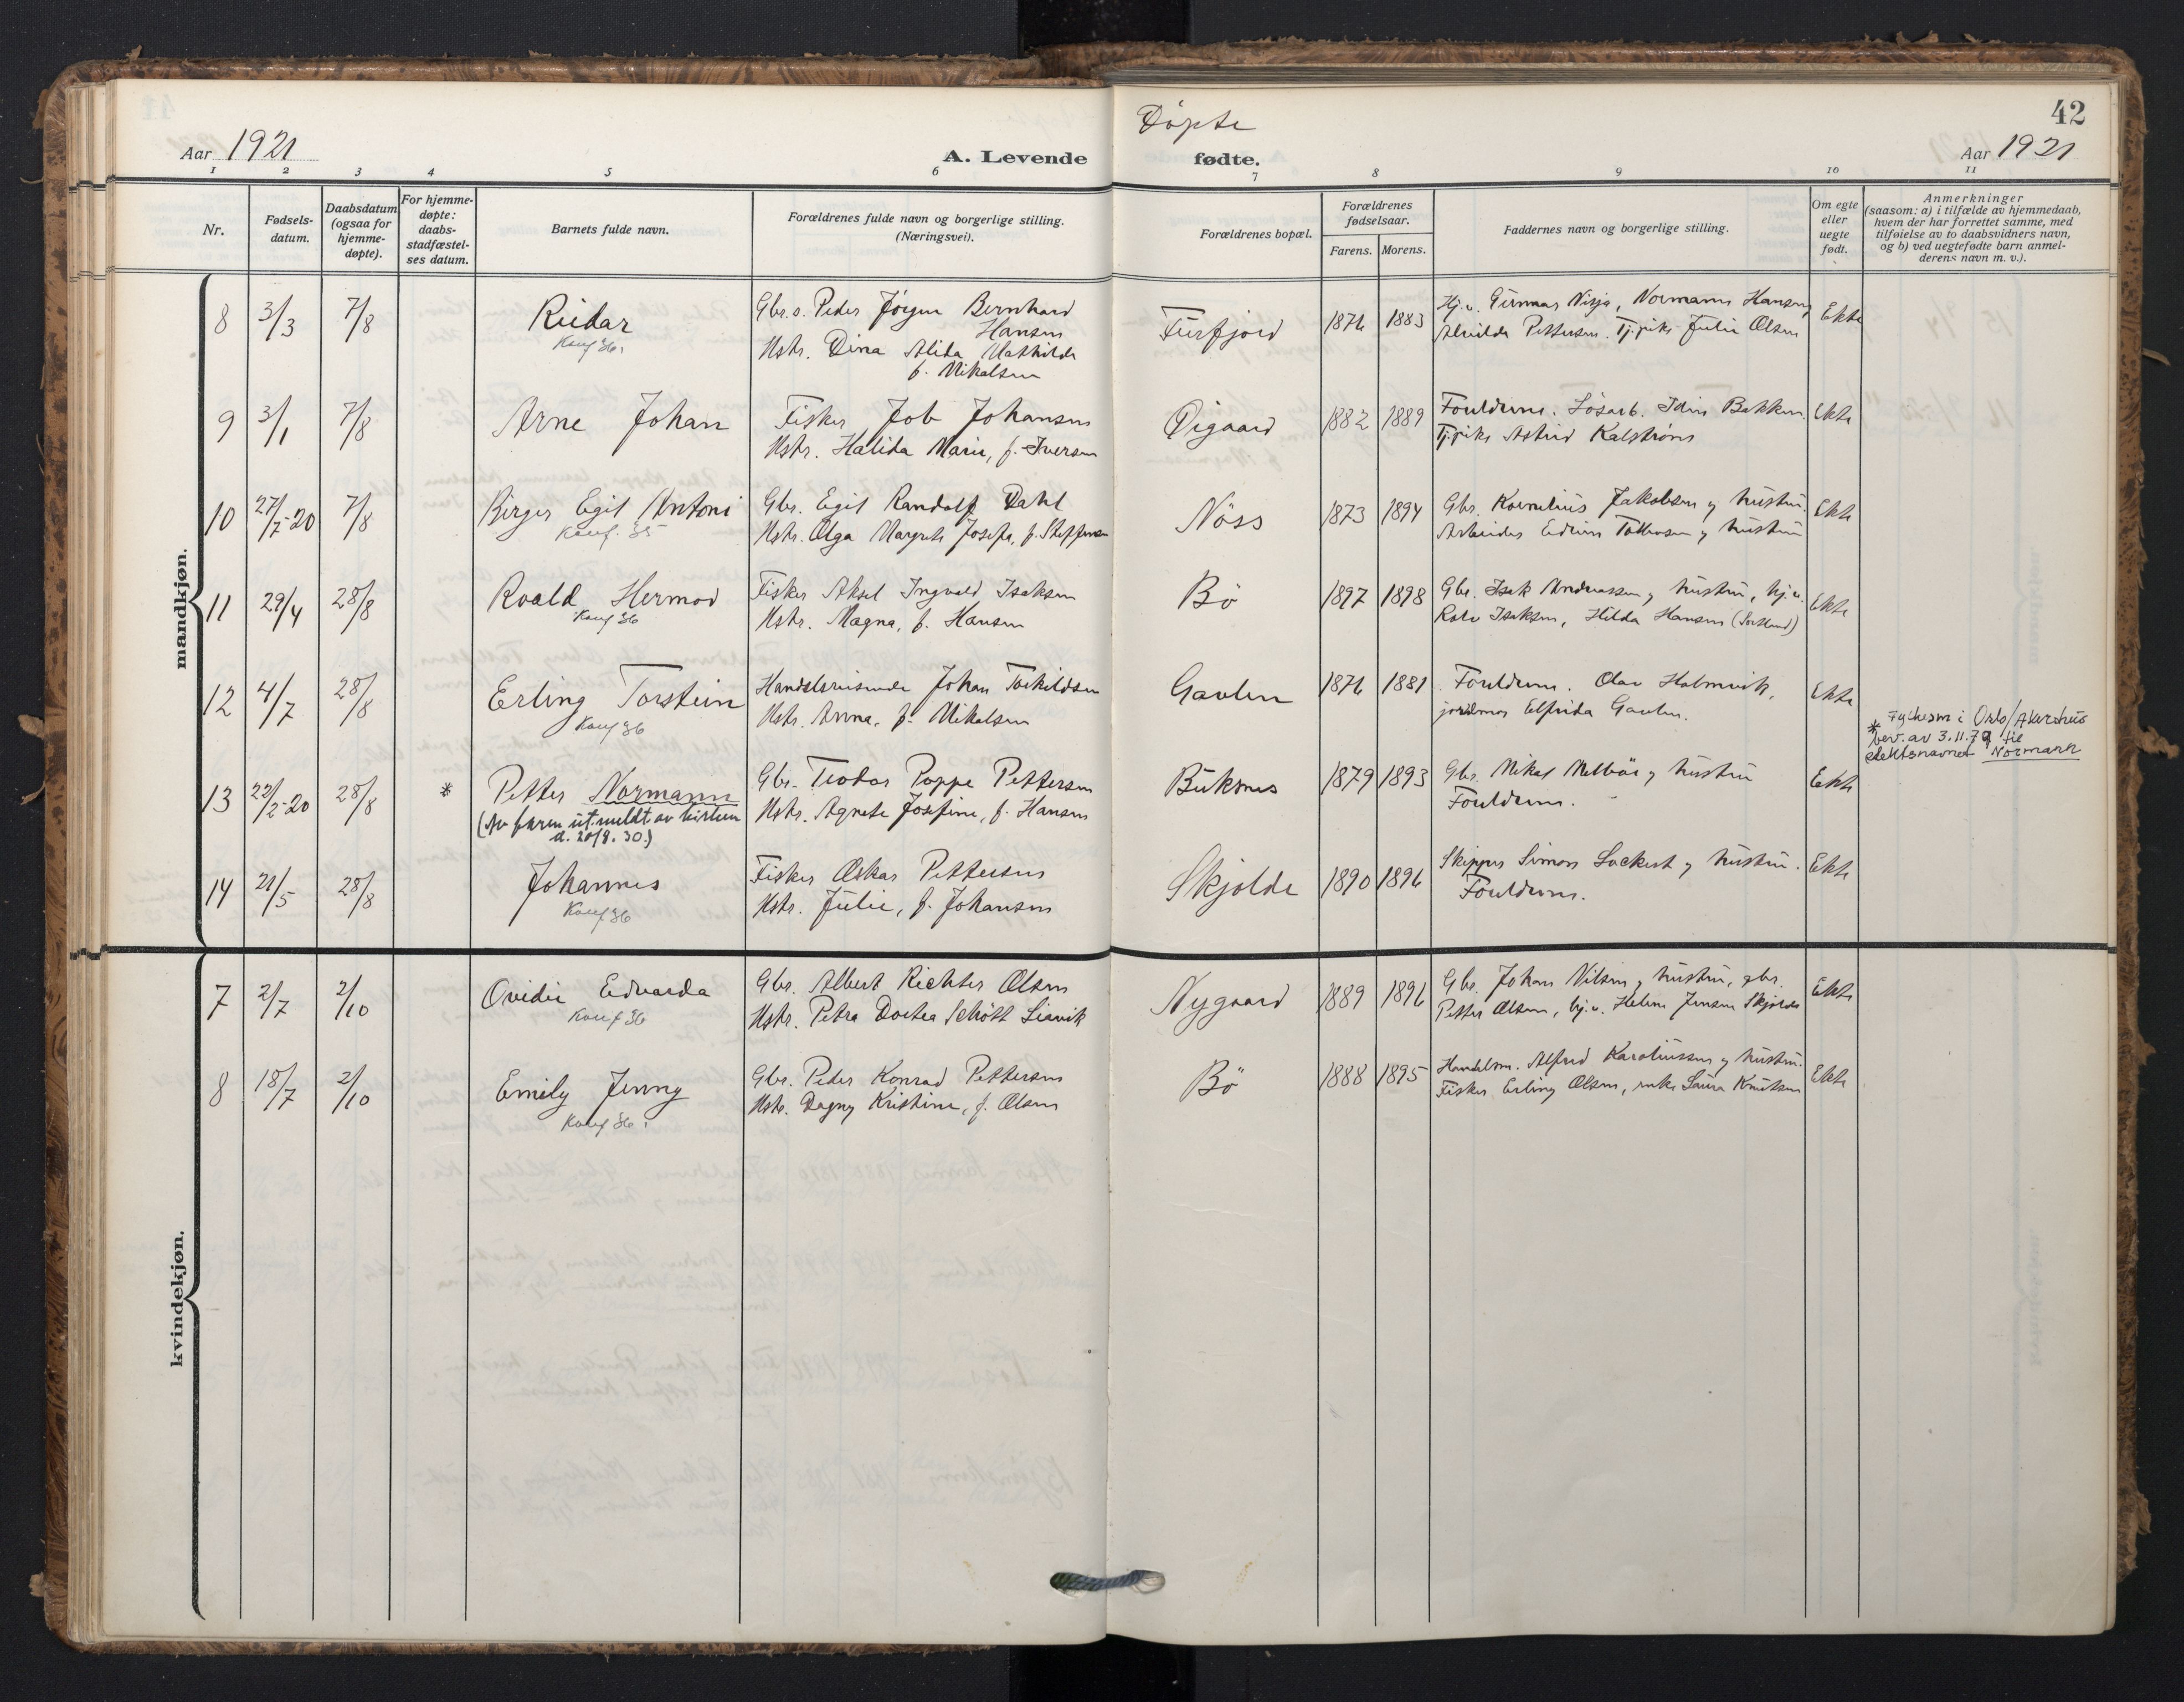 Døpte
42
Aar 1921
A. Levende fødte.
Aar 1921
1 2 3 4 5 6 7 8 9 10 11
Nr.
Fødsels-
datum.
Daabsdatum
(ogsaa for
hjemme-
døpte).
For hjemme-
døpte:
daabs-
stadfæstel-
ses datum.
Barnets fulde navn.
Forældrenes fulde navn og borgerlige stilling.
(Næringsvei).
Forældrenes bopæl.
Forældrenes
fødselsaar.
Farens. Morens.
Faddernes navn og borgerlige stilling.
Om egte
eller
uegte
født.
Anmerkninger
(saasom: a) i tilfælde av hjemmedaab,
hvem der har forrettet samme, med
tilføielse av to daabsvidners navn,
og b) ved uegtefødte barn anmel-
derens navn m. v.).
mandkjøn.
8 3/3 7/8 Reidar
Konf 36.
Gbr.s. Peder Jørgen Bernhard
Hansen
Hstr. Dina Alida Mathilde
f. Mikalsen
Furfjord 1876 1883
Hj.v. Gunnar Nisja, Normann Hansen,
Alvilde Pettersen. Tj.pike Julie Olsen
Ekte
9 3/1 7/8 Arne Johan
Fisker Job Johansen
Hstr. Halida Marie, f. Iversen
Øigaard 1882 1889
Foreldrene. Løsarb. Idin Bakken.
Tj.pike Astrid Kalstrøm
Ekte
10 27/7-20 7/8 Birger Egil Antoni
Konf. 35
Gbr. Egil Randolf Dahl
Hstr. Olga Margrete Josefa, f. Steffensen
Nöss 1873 1894
Gbr. Kornelius Jakobsen og hustru.
Arbeider Edvin Tollefsen og hustru
Ekte
11 29/4 28/8 Roald Hermod
Konf 36
Fisker Aksel Ingvald Isaksen
Hstr. Magna, f. Hansen
Bö 1897 1898
Gbr. Isak Andreassen og hustru, hj.v.
Rolv Isaksen, Hilda Hansen (Sortland)
Ekte
12 4/7 28/8 Erling Torstein
Konf 36
Handelsreisende Johan Torkildsen
Hstr. Anna, f. Mikalsen
Gavlen 1876 1881
Foreldrene. Olav Holmvik,
jordmor Elfrida Gavlen.
Ekte
* Fylkesm i Oslo/Akershus
bev. av 3.11.79 til
slektsnavnet Normann
13 22/2-20 28/8 * Petter Normann
(Av faren utmeldt av kirken
d. 20/8. 30.)
Gbr. Teodor Poppe Pettersen
Hstr. Agnete Josefine, f. Hansen
Buksnes 1879 1893
Gbr. Mikal Melböe og hustru
Foreldrene.
Ekte
14 21/5 28/8 Johannes
Konf 36
Fisker Oskar Pettersen
Hstr. Julie, f. Johansen
Skjolde 1890 1896
Skipper Simon Lockert og hustru.
Foreldrene.
Ekte
kvindekjøn.
7 2/7 2/10 Ovidie Edvarda
Konf 36
Gbr. Albert Richter Olsen
Hstr. Petra Dortea Schött Liavik
Nygaard 1889 1896
Gbr. Johan Nilsen og hustru, gbr.
Petter Olsen, hj.v. Helene Jensen Skjolde
Ekte
8 18/7 2/10 Emily Jenny
Konf 36.
Gbr. Peder Konrad Pettersen
Hstr. Dagny Kristine, f. Olsen
Bö 1888 1895
Handelsm. Alfred Karoliussen og hustru.
Fisker Erling Olsen, enke Laura Knutsen
Ekte